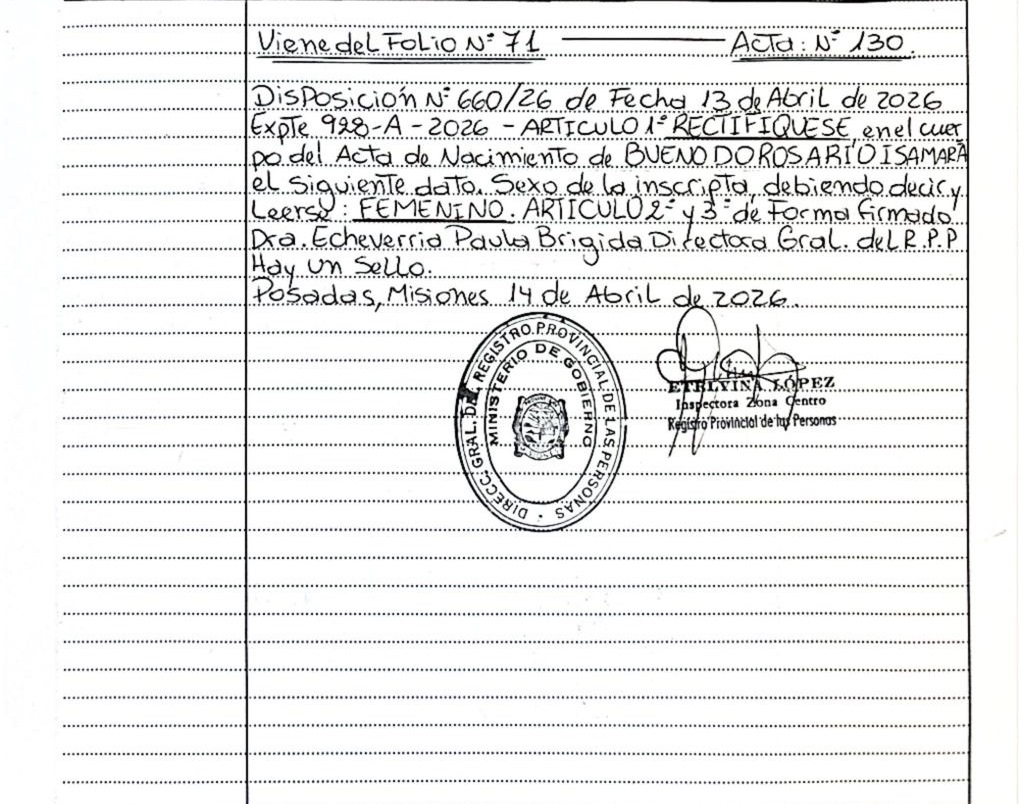 Viene del Folio Nº 71 ——— Acta: Nº 130.
Disposición Nº 660/26 de Fecha 13 de Abril de 2026
Expte 928-A-2026 - ARTICULO 1º RECTIFIQUESE, en el cuer
po del Acta de Nacimiento de BUENO DO ROSARIO ISAMARA
el siguiente dato. Sexo de la inscripta, debiendo decir y
Leerse: FEMENINO. ARTICULO 2º y 3º de Forma firmado
Dra. Echeverria Paula Brigida Directora Gral. del R.P.P
Hay un Sello.
Posadas, Misiones 14 de Abril de 2026.
DIRECC. GRAL. DEL REGISTRO PROVINCIAL DE LAS PERSONAS
MINISTERIO DE GOBIERNO
ETELVINA LÓPEZ
Inspectora Zona Centro
Registro Provincial de las Personas